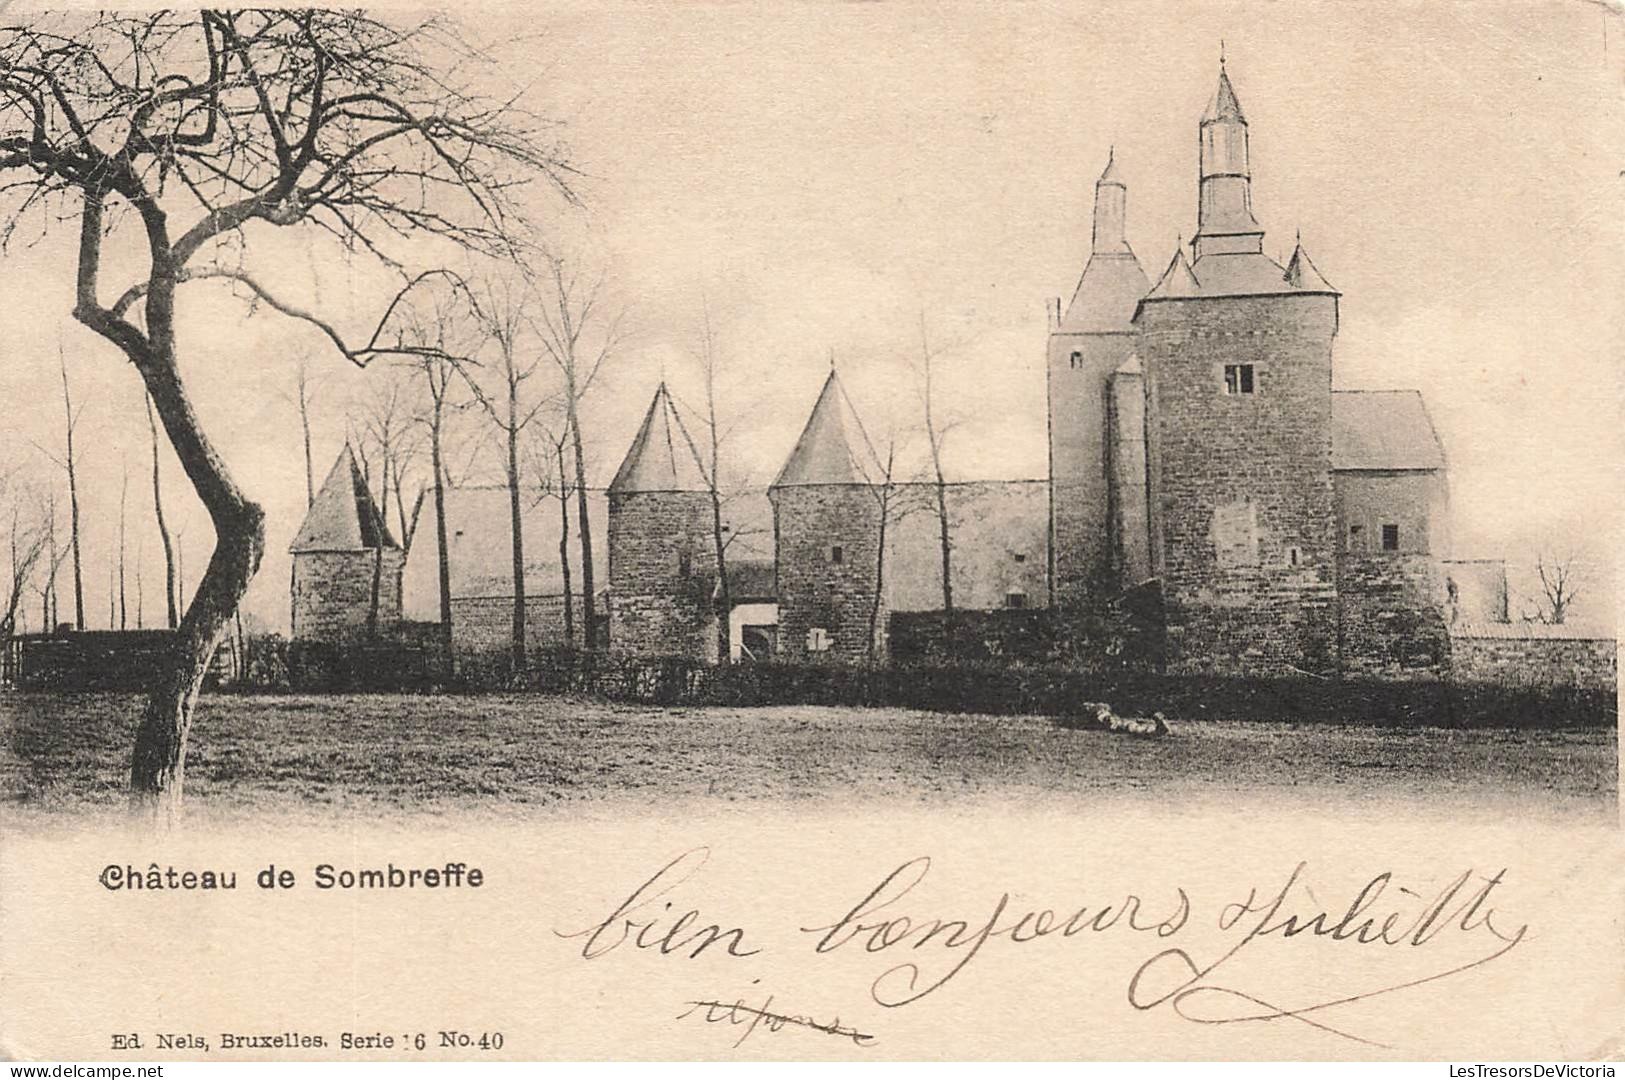 Château de Sombreffe
bien bonjours Juliètte
réponse
Ed. Nels, Bruxelles. Serie 16 No. 40
delcampe.net
LesTresorsDeVictoria